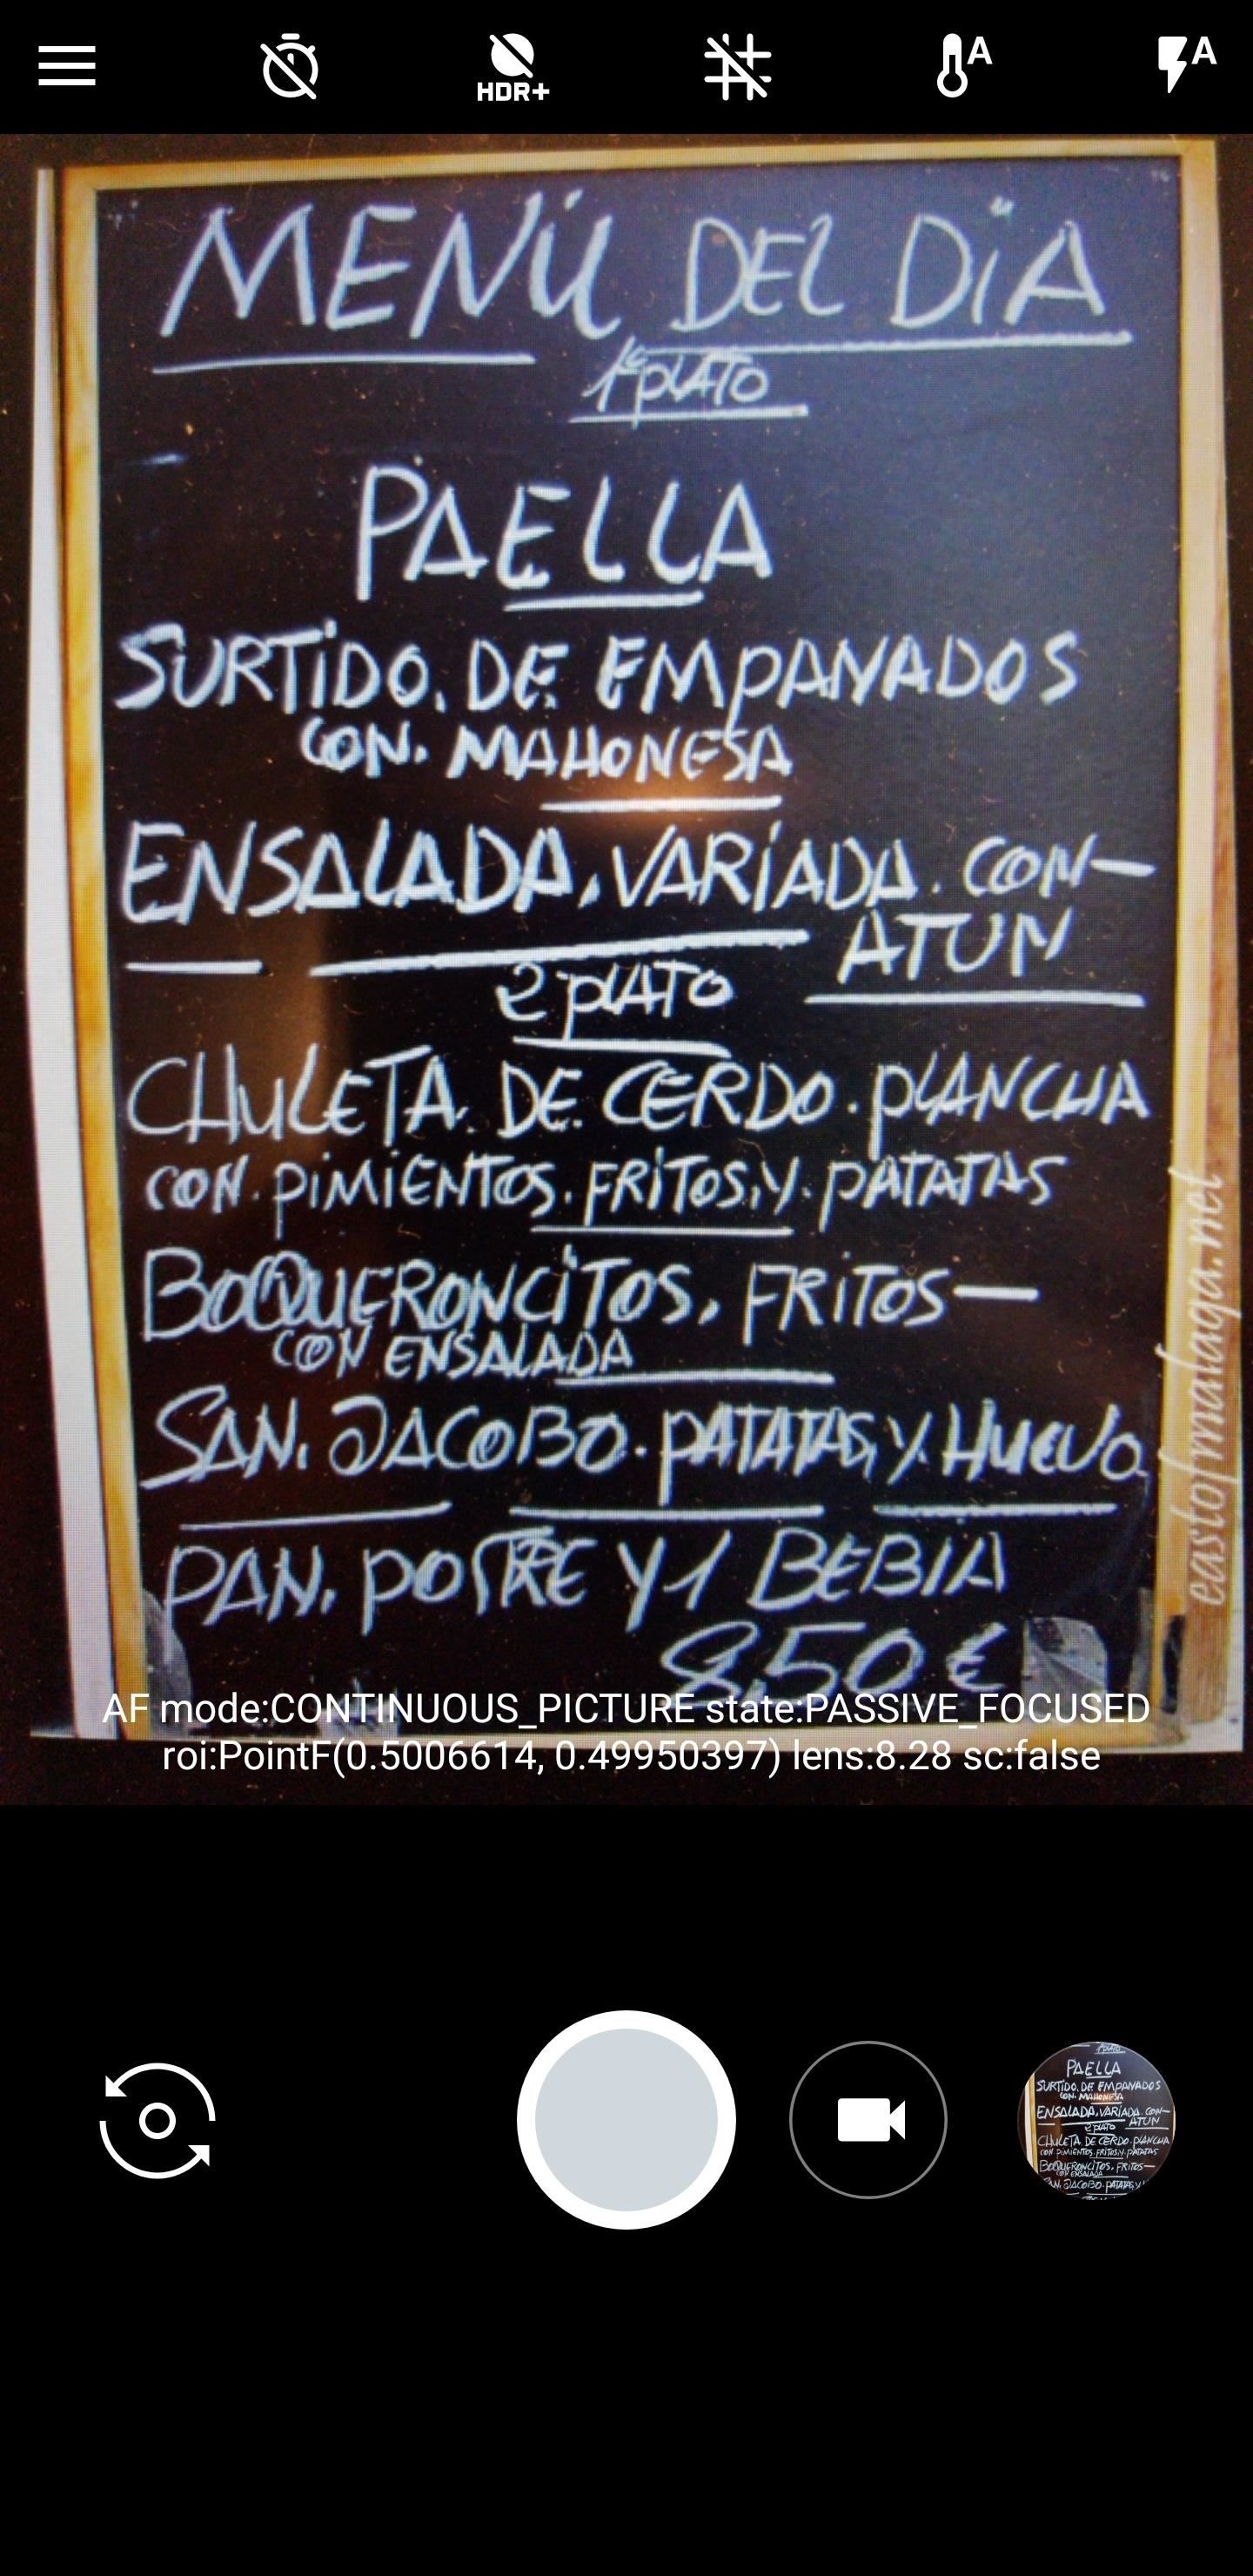 HDR+
A
A
MENÚ DEL DÍA
1º PLATO
PAELLA
SURTIDO. DE. EMPANADOS
CON. MAHONESA
ENSALADA, VARIADA. CON-
ATUN
2º PLATO
CHULETA. DE. CERDO. PLANCHA
CON. PIMIENTOS. FRITOS, Y. PATATAS
BOQUERONCITOS, FRITOS-
CON ENSALADA
SAN. JACOBO. PATATAS, Y HUEVO.
PAN, POSTRE Y 1 BEBIA
8,50 €
eastofmalaga.net
AF mode:CONTINUOUS_PICTURE state:PASSIVE_FOCUSED
roi:PointF(0.5006614, 0.49950397) lens:8.28 sc:false
1º PLATO
PAELLA
SURTIDO. DE. EMPANADOS
CON. MAHONESA
ENSALADA, VARIADA. CON-
ATUN
2º PLATO
CHULETA. DE CERDO. PLANCHA
CON. PIMIENTOS. FRITOS, Y. PATATAS
BOQUERONCITOS, FRITOS-
CON ENSALADA